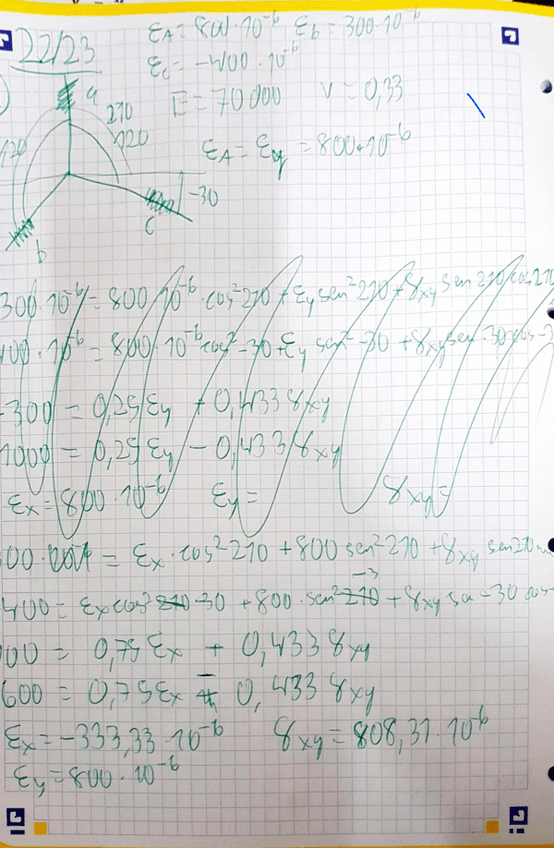 22/23
εA = 800·10⁻⁶ εb = 300·10⁻⁶
εc = -400·10⁻⁶
E = 70000 ν = 0,33
a
210
120
120
εA = εy = 800·10⁻⁶
-30
b
c
300·10⁻⁶ = 800·10⁻⁶·cos²210 + εy sen²210 + γxy sen210 cos210
400·10⁻⁶ = 800·10⁻⁶ cos²-30 + εy sen²-30 + γxy sen-30 cos-3
-300 = 0,25 εy + 0,433 γxy
1000 = 0,25 εy - 0,433 γxy
εx = 800·10⁻⁶ εy = γxy =
00 = εx·cos²210 + 800 sen²210 + γxy sen210
400 = εx cos²-30 + 800·sen²-3 + γxy sen-30 cos-
00 = 0,75 εx + 0,433 γxy
600 = 0,75 εx - 0,433 γxy
εx = -333,33·10⁻⁶ γxy = 808,31·10⁻⁶
εy = 800·10⁻⁶